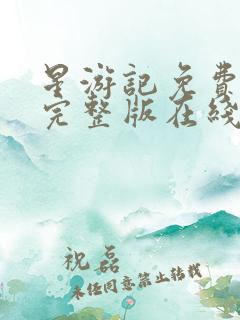 星游记免费
完整版在线
祝磊
未经同意禁止转载